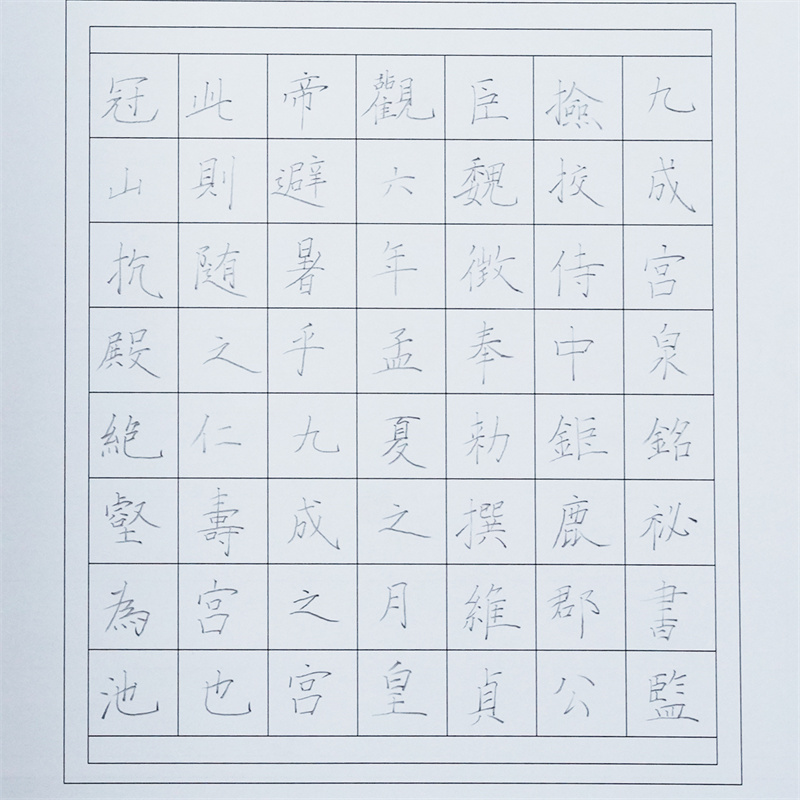 九成宮泉銘祕書監
撿挍侍中鉅鹿郡公
臣魏徴奉勑撰維貞
觀六年孟夏之月皇
帝避暑乎九成之宮
此則随之仁壽宮也
冠山抗殿絶壑為池